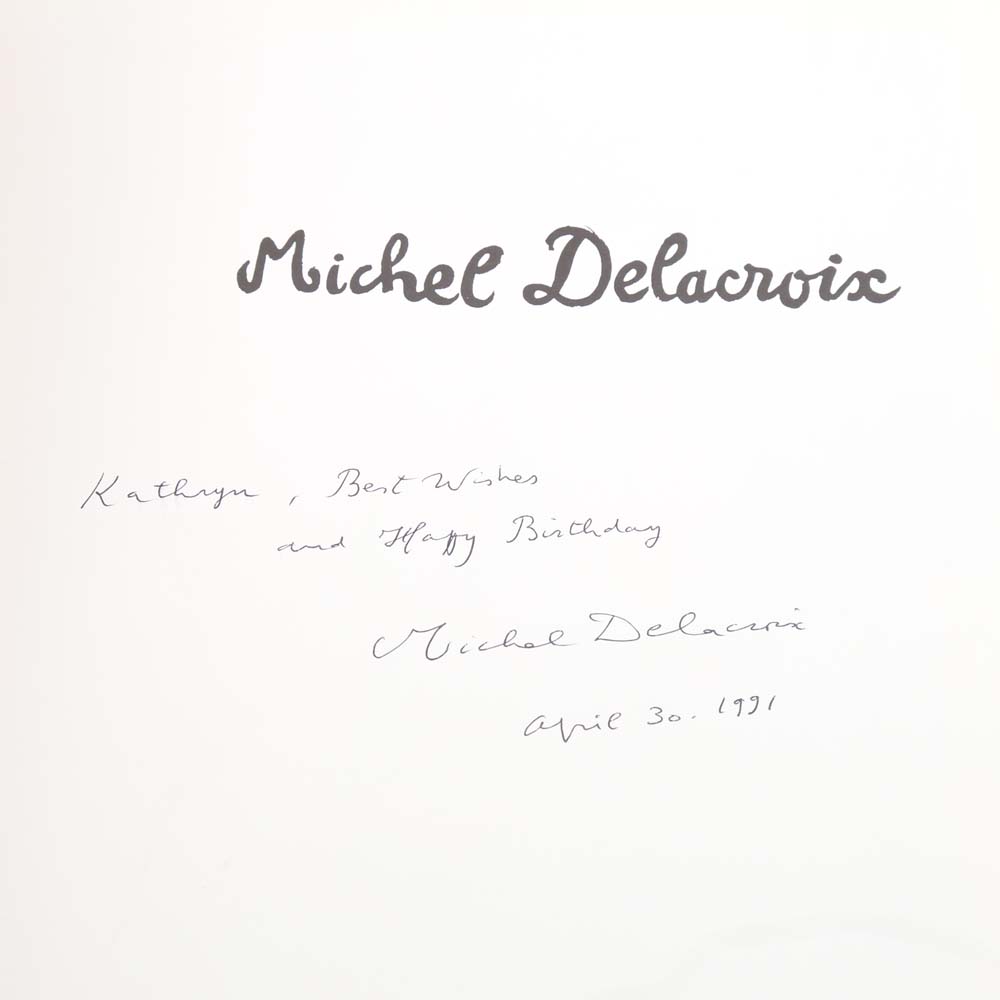 Michel Delacroix
Kathryn, Best Wishes
and Happy Birthday
Michel Delacroix
April 30. 1991